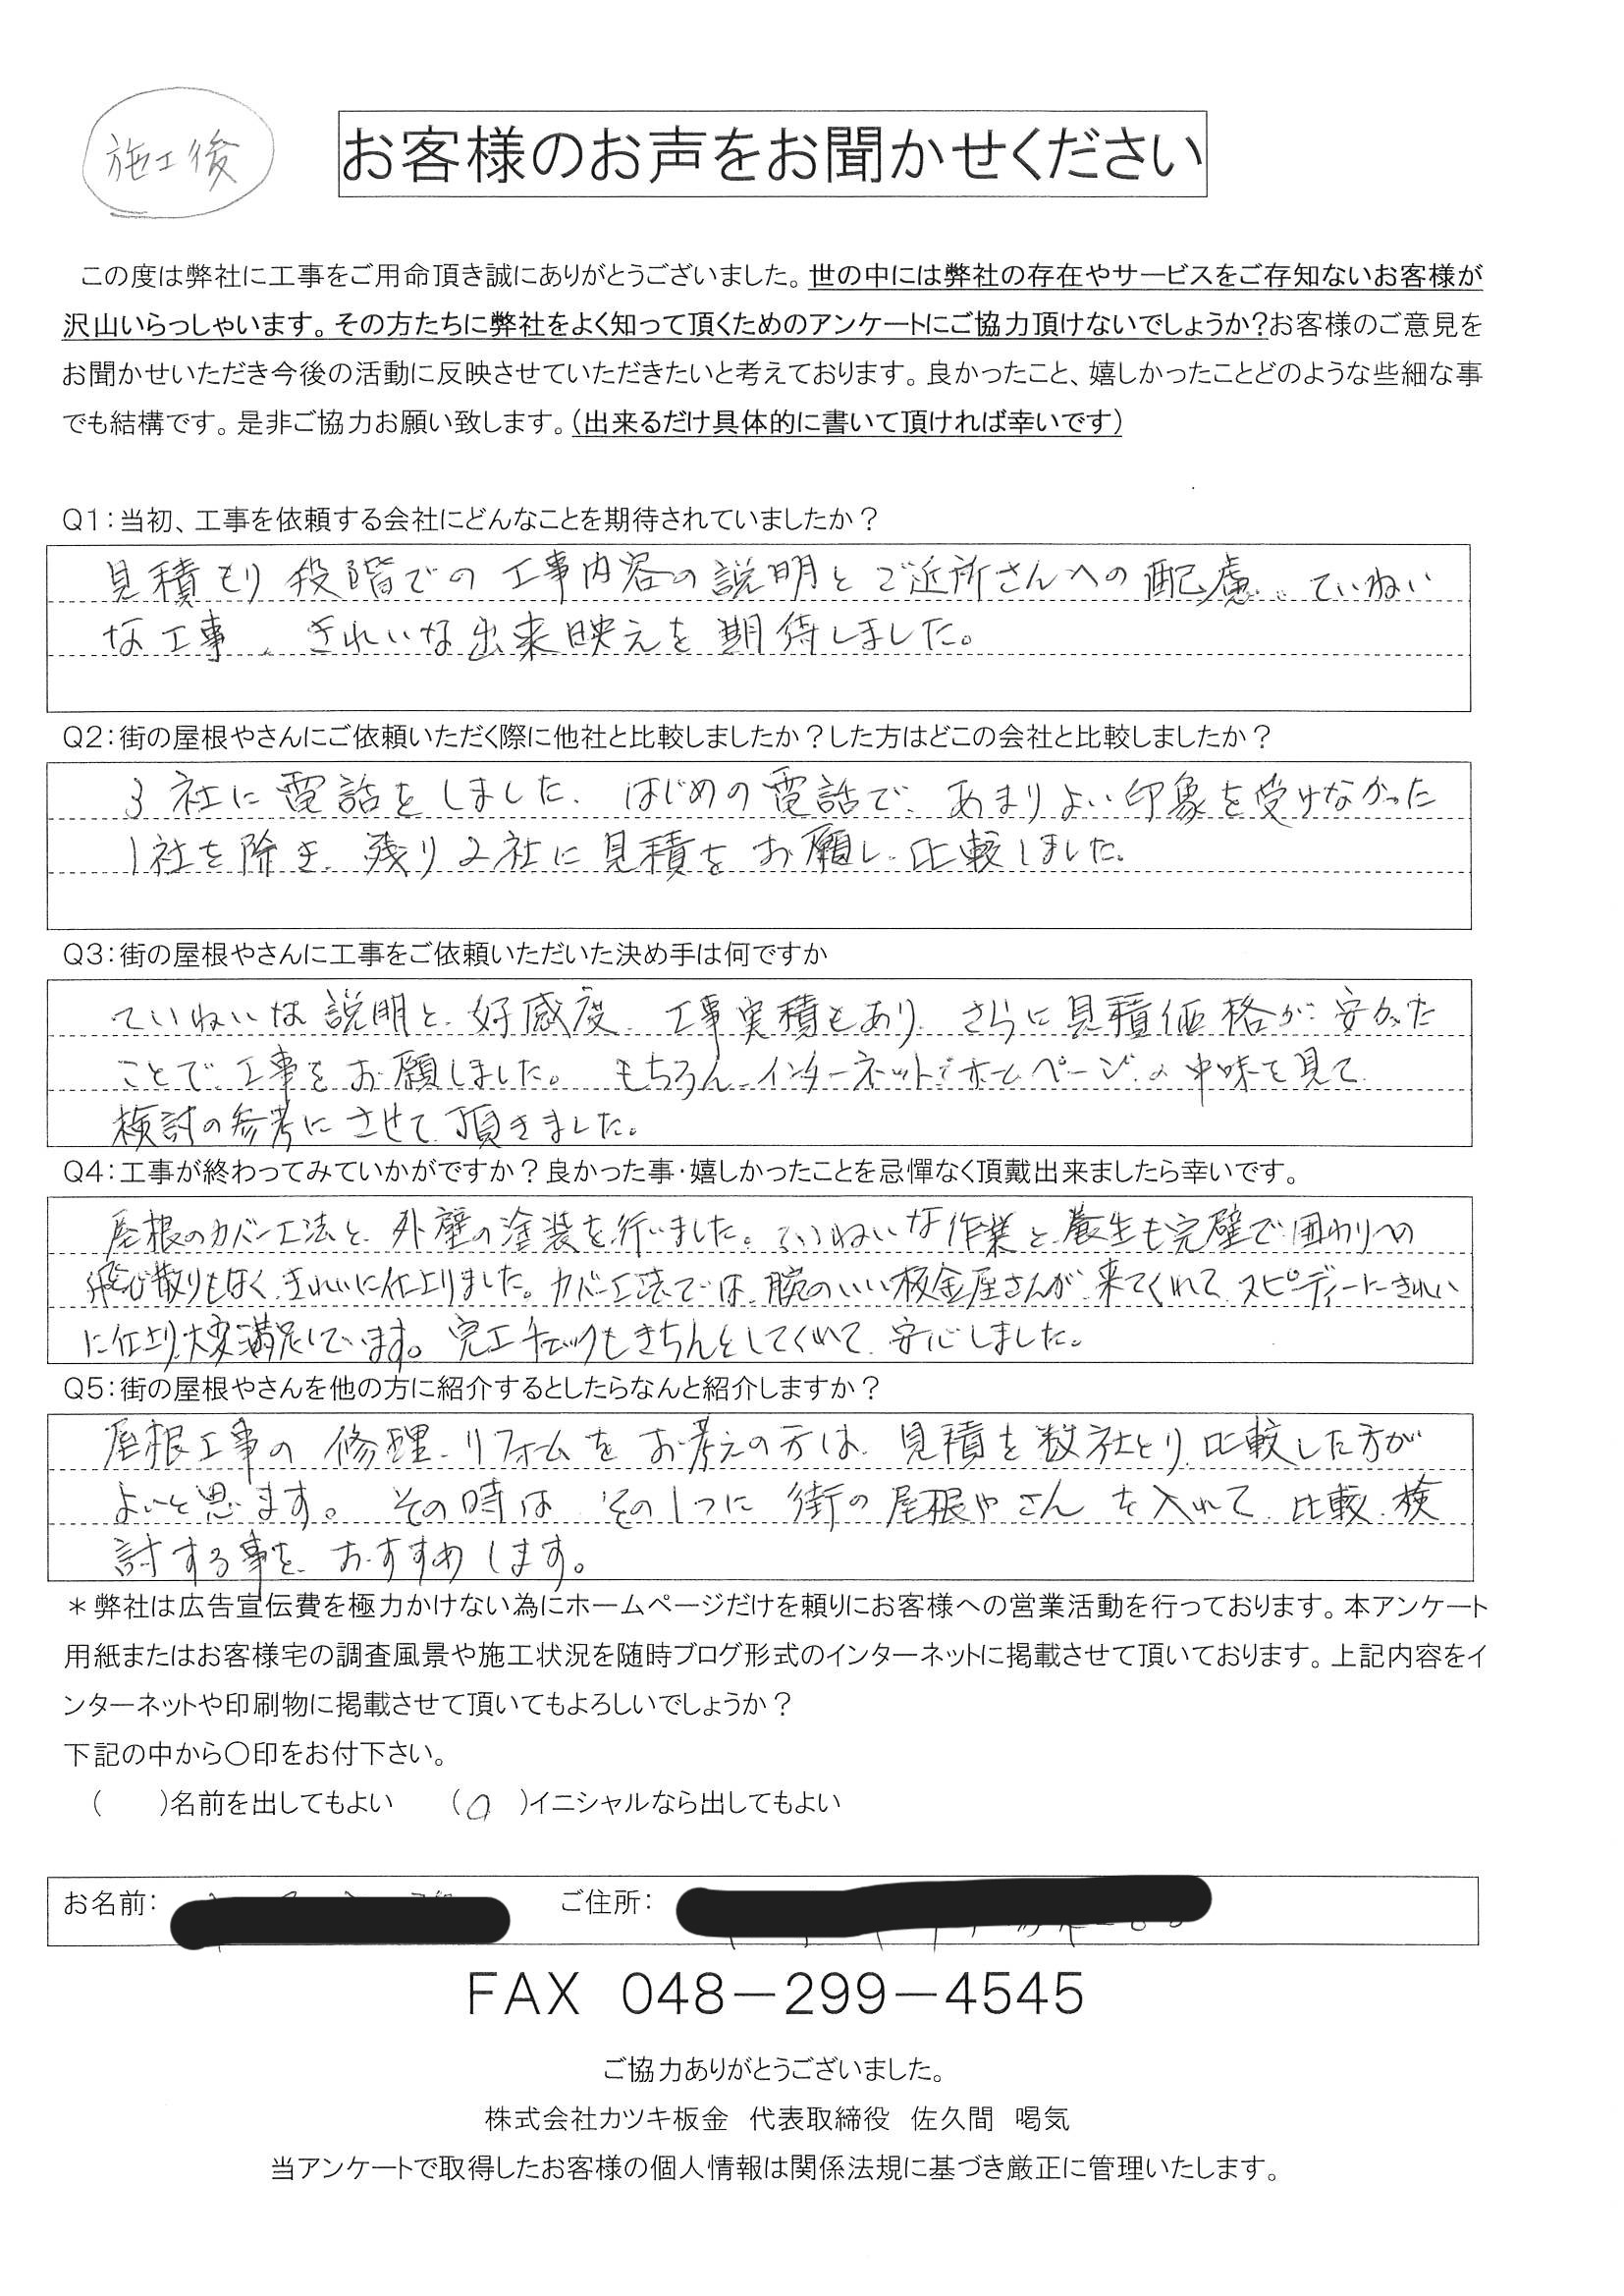 施工後
お客様のお声をお聞かせください
この度は弊社に工事をご用命頂き誠にありがとうございました。世の中には弊社の存在やサービスをご存知ないお客様が
沢山いらっしゃいます。その方たちに弊社をよく知って頂くためのアンケートにご協力頂けないでしょうか?お客様のご意見を
お聞かせいただき今後の活動に反映させていただきたいと考えております。良かったこと、嬉しかったことどのような些細な事
でも結構です。是非ご協力お願い致します。(出来るだけ具体的に書いて頂ければ幸いです)
Q1:当初、工事を依頼する会社にどんなことを期待されていましたか?
見積もり段階での工事内容の説明とご近所さんへの配慮、ていねい
な工事、きれいな出来映えを期待しました。
Q2:街の屋根やさんにご依頼いただく際に他社と比較しましたか?した方はどこの会社と比較しましたか?
3社に電話をしました、はじめの電話で、あまりよい印象を受けなかった
1社を除き、残り2社に見積をお願し、比較しました。
Q3:街の屋根やさんに工事をご依頼いただいた決め手は何ですか
ていねいな説明と、好感度、工事実積もあり、さらに見積価格が安かった
ことで、工事をお願しました。もちろん、インターネットでホームページの中味を見て
検討の参考にさせて頂きました。
Q4:工事が終わってみていかがですか?良かった事・嬉しかったことを忌憚なく頂戴出来ましたら幸いです。
屋根のカバー工法と、外壁の塗装を行いました。ていねいな作業と養生も完璧で囲わりへの
飛び散りもなく、きれいに仕上りました。カバー工法では、腕のいい板金屋さんが来てくれて、スピーディーにきれい
に仕上り大変満足しています。完工チェックもきちんとしてくれて、安心しました。
Q5:街の屋根やさんを他の方に紹介するとしたらなんと紹介しますか?
屋根工事の修理、リフォームをお考えの方は、見積を数社とり、比較した方が
よいと思います。その時は、その1つに街の屋根やさんを入れて、比較、検
討する事を、おすすめします。
*弊社は広告宣伝費を極力かけない為にホームページだけを頼りにお客様への営業活動を行っております。本アンケート
用紙またはお客様宅の調査風景や施工状況を随時ブログ形式のインターネットに掲載させて頂いております。上記内容をイ
ンターネットや印刷物に掲載させて頂いてもよろしいでしょうか?
下記の中から〇印をお付下さい。
( )名前を出してもよい (○)イニシャルなら出してもよい
お名前: ご住所:
FAX 048-299-4545
ご協力ありがとうございました。
株式会社カツキ板金 代表取締役 佐久間 喝気
当アンケートで取得したお客様の個人情報は関係法規に基づき厳正に管理いたします。